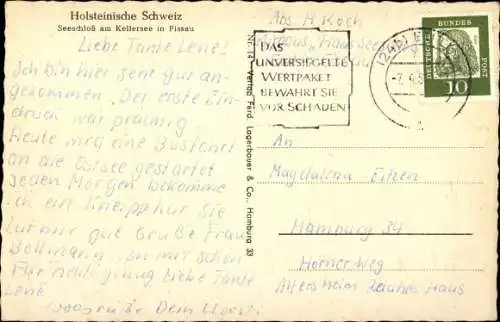 Holsteinische Schweiz
Seeschloß am Kellersee in Fissau
Liebe Tante Lene!
Ich bin hier sehr gut an-
gekommen. Der erste Ein-
druck war prächtig
Heute wird eine Busfahrt
an die Ostsee gestartet
jeden Morgen bekomme
ich ein Kneippkur Sie
tut mir gut Grüße Frau
schon
Für heute genug liebe Tante
Lene
Dein
Nr. 74 Verlag Ferd. Lagerbauer & Co., Hamburg 33
Abs. H. Koch
DAS
UNVERSIEGELTE
WERTPAKET
BEWAHRT SIE
VOR SCHADEN
(24b)
-7.
DEUTSCHE BUNDES POST
10
An
Magdalena Eitzen
Hamburg 34
Horner Weg
Altersheim Rauhes Haus